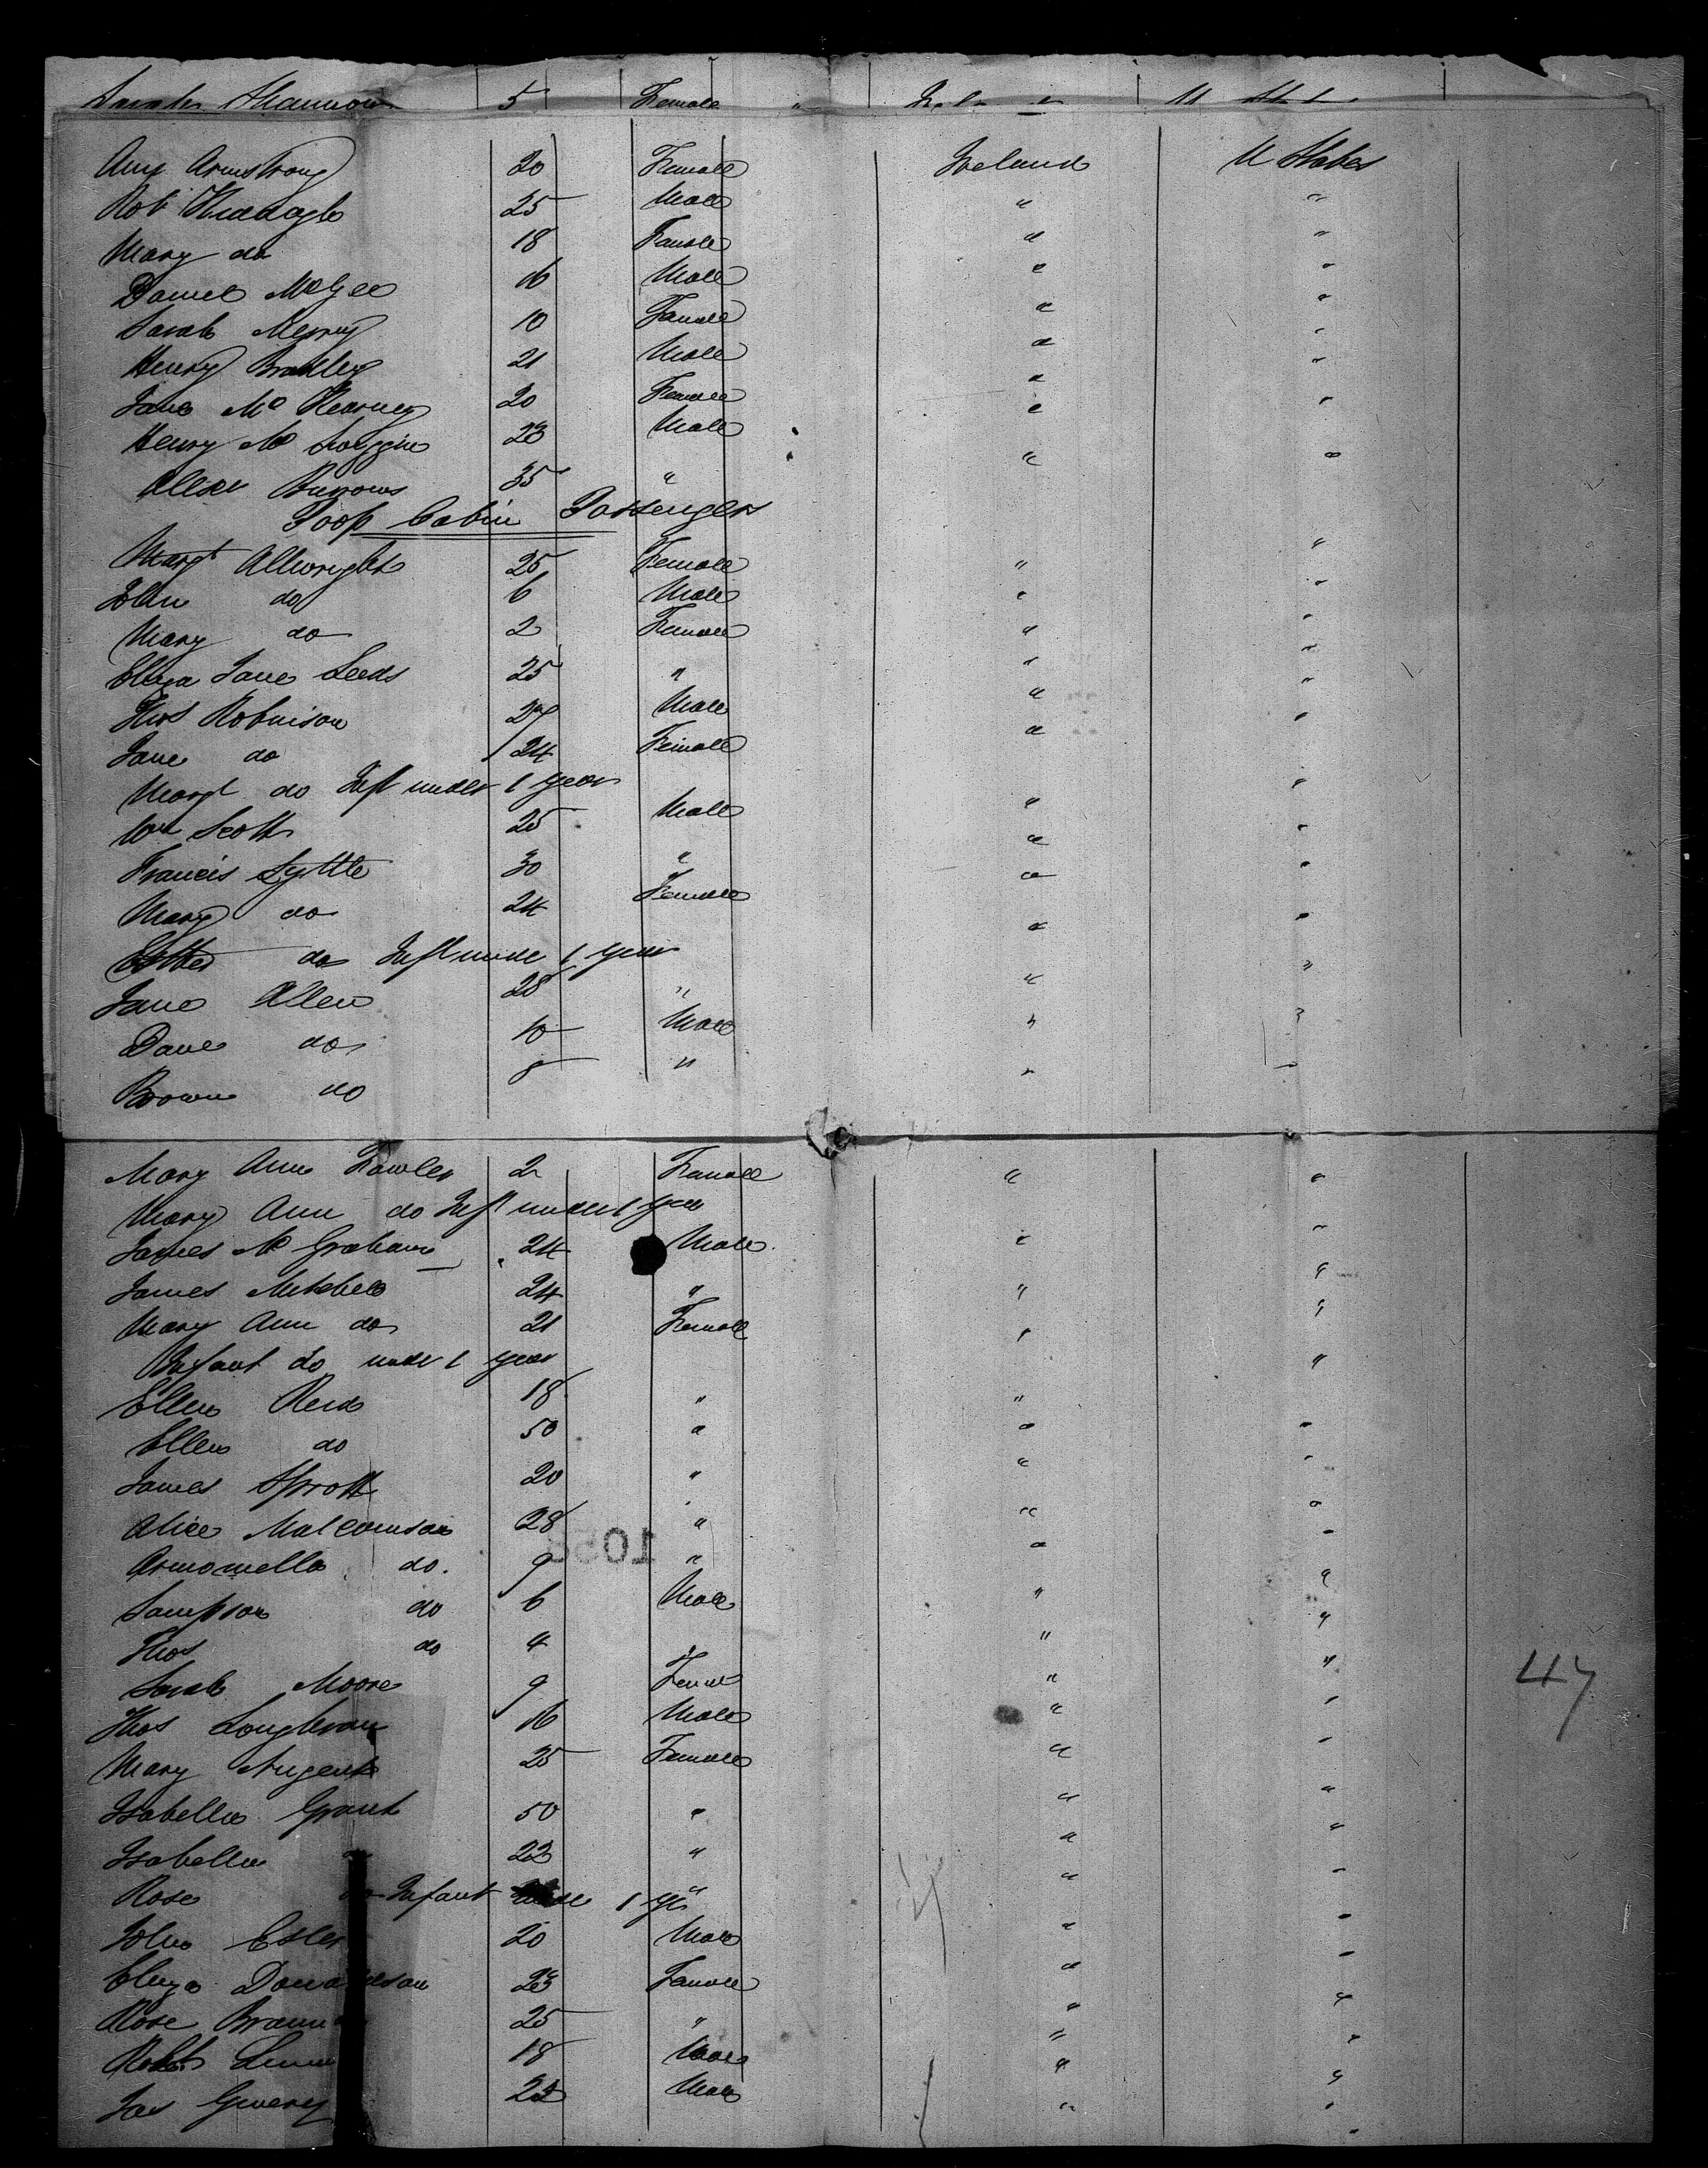 Sarah Shannon 5 Female "
Amy Armstrong 20 Female Ireland U States
Robt 25 Male " "
Mary do 18 Female " "
Daniel McGee 16 Male " "
Sarah Merry 10 Female " "
Henry Bradley 21 Male " "
Jane Mc Kearney 20 Female " "
Henry Mc 23 Male " "
Alexr Burrows 35 " " "
Poop Cabin Passengers
Margt Allwright 25 Female " "
John do 6 Male " "
Mary do 2 Female " "
Eliza Jane Leeds 25 " " "
Thos Robinson 27 Male " "
Jane do 24 Female " "
Margt do Inft under 1 year "
Wm Scott 25 Male " "
Francis Lyttle 30 " " "
Mary do 24 Female " "
Esther do Inft under 1 year " "
Jane Allen 28 " " "
Dave do 10 Male " "
Brown do 8 " " "
Mary Ann Fowler 2 Female " "
Mary Ann do Inft under 1 year
James Mc Graham 24 Male " "
James Mitchell 24 " " "
Mary Ann do 21 Female " "
Infant do under 1 year "
Ellen Reid 18 " "
Ellen do 50 " " "
James Sprott 20 " " "
Alice Malcomson 28 " " "
Armomella do. 9 " " "
Sampson do 6 Male " "
Thos do 4 " " "
Sarah Moore 9 Female " "
Thos Loughran 16 Male " "
Mary Nugent 25 Female " "
Isabella Grant 50 " " "
Isabella 22 " " "
Rose do Infant under 1 yr " " "
John Esler 20 Male " "
Eliza Donaldson 23 Female " "
Rose 25 " " "
Robt 18 Male " "
Jas 22 Male " "
47